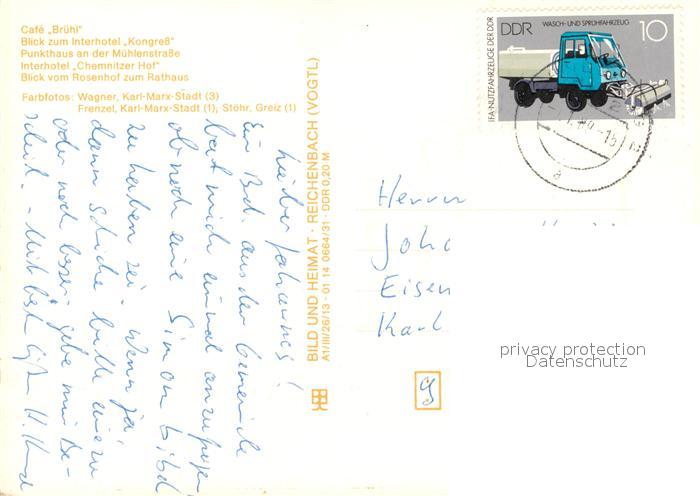 Café „Brühl"
Blick zum Interhotel „Kongreß"
Punkthaus an der Mühlenstraße
Interhotel „Chemnitzer Hof"
Blick vom Rosenhof zum Rathaus
Farbfotos: Wagner, Karl-Marx-Stadt (3)
Frenzel, Karl-Marx-Stadt (1), Stöhr, Greiz (1)
Lieber Johannes!
Ein Brd. aus der Gemeinde
bat mich einmal anzufragen
ob noch eine Simon bibel
zu haben sei. Wenn ja,
dann schicke bitte eine zu
oder noch besser gebe mir Be-
scheid. - Mit best. Grüßen H.
BILD UND HEIMAT · REICHENBACH (VOGTL)
A1/III/26/13 · 01 14 0664/31 · DDR 0,20 M
IFA-NUTZFAHRZEUGE DER DDR
WASCH- UND SPRÜHFAHRZEUG
DDR 10
Herrn
Joha
Eisen
Karl
privacy protection
Datenschutz